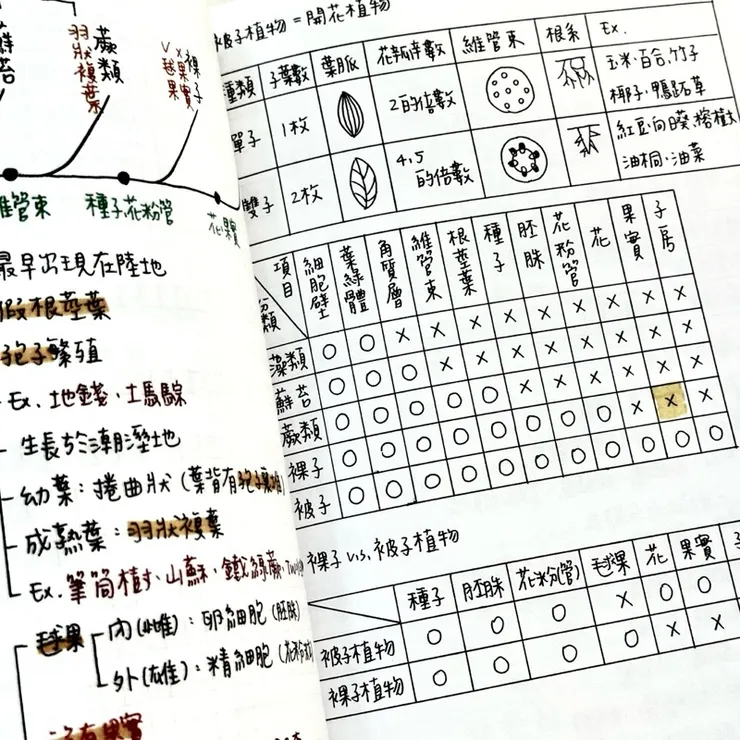 蘚苔
羽狀複葉 蕨類
毬果 裸子
維管束 種子,花粉管 花,果實
最早出現在陸地
假根莖葉
孢子繁殖
Ex. 地錢、土馬騌
生長於潮溼地
幼葉：捲曲狀（葉背有孢子囊堆）
成熟葉：羽狀複葉
Ex. 筆筒樹、山蘇、鐵線蕨
毬果 內(雌)：卵細胞（胚珠）
外(雄)：精細胞
沒有果實
被子植物 = 開花植物
種類 子葉數 葉脈 花瓣數 維管束 根系 Ex.
單子 1枚 2的倍數 玉米、百合、竹子
椰子、鴨跖草
雙子 2枚 4,5的倍數 紅豆、向日葵、榕樹
油桐、油菜
項目 分類 細胞壁 葉綠體 角質層 維管束 根莖葉 種子 胚珠 花粉管 花 果實 子房
藻類 O O X X X X X X X X X
蘚苔 O O O X X X X X X X X
蕨類 O O O O O X X X X X X
裸子 O O O O O O O O X X X
被子 O O O O O O O O O O O
裸子 v.s. 被子植物
種子 胚珠 花粉(管) 毬果 花 果實 子
被子植物 O O O X O O
裸子植物 O O O O X X